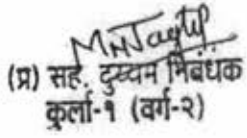 (प्र) सह. दुय्यम निबंधक
कुर्ला-१ (वर्ग-२)